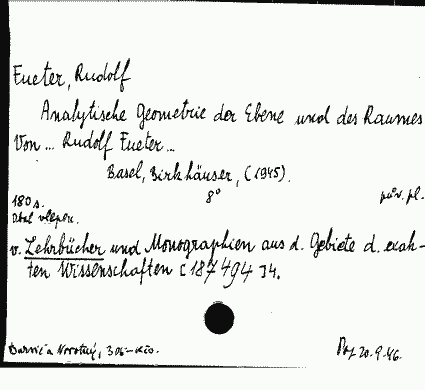 Fueter, Rudolf
Analytische Geometrie der Ebene und des Raumes
Von ... Rudolf Fueter ...
Basel, Birkhäuser, (1945).
180 s. 8° pův. pl.
obal vlepen.
v. Lehrbücher und Monographien aus d. Gebiete d. exak-
ten Wissenschaften [187494] 4.
Barvič a Novotný, 306-Kčs. 20.9.46.